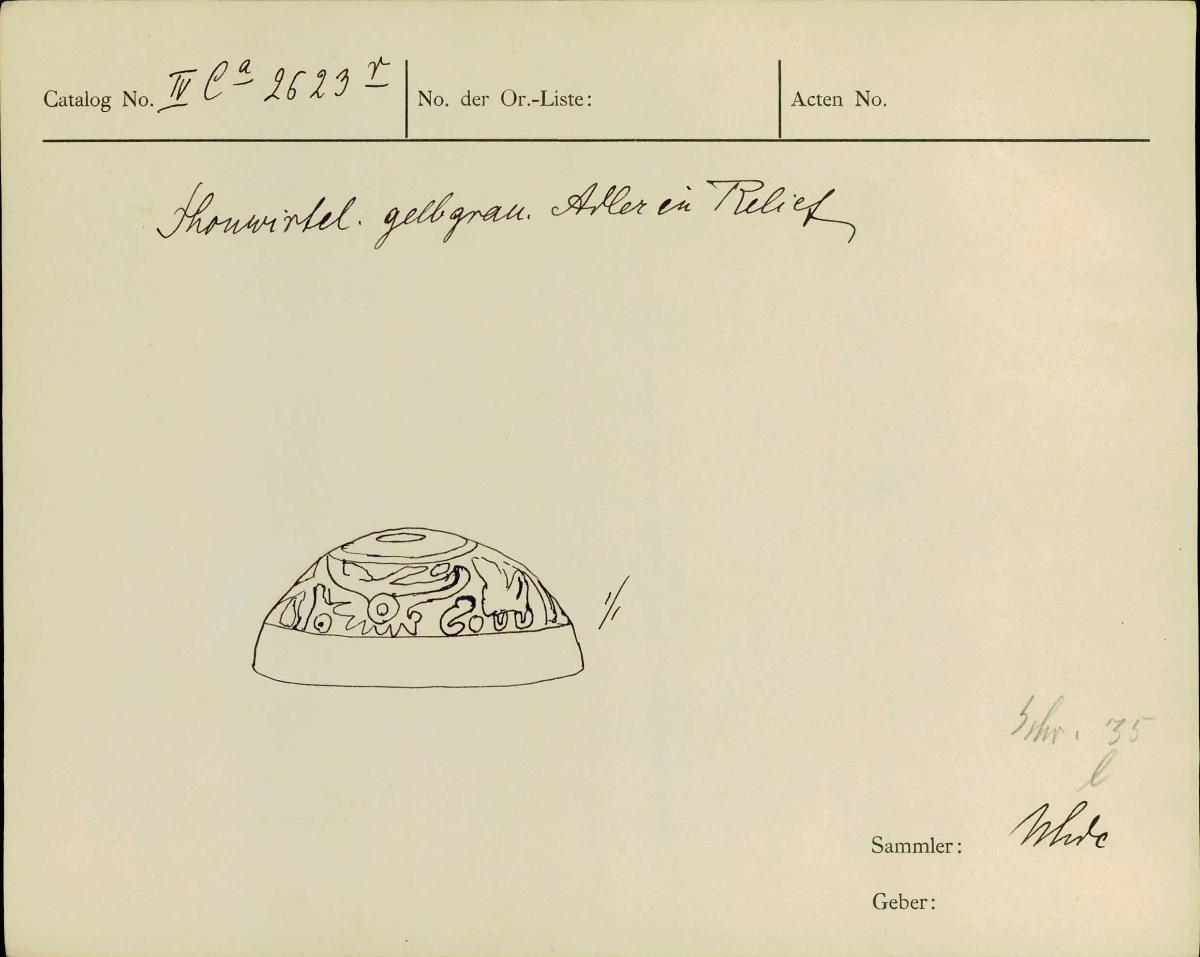 Catalog No. IV Ca 2623 r No. der Or.-Liste: Acten No.
Thonwirtel. gelbgrau. Adler in Relief
1/1
Schr. 35
l
Sammler: Uhde
Geber: